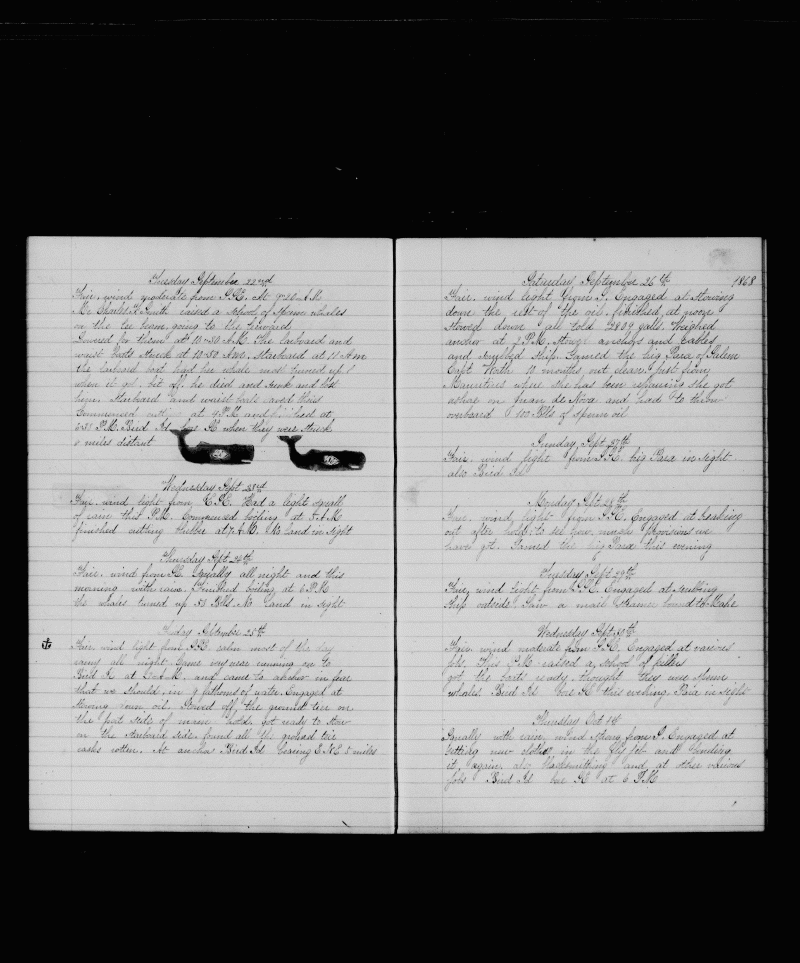 Tuesday September 22nd
Fair, wind moderate from S.E. At 9-20 A.M
Mr Charles H Smith raised a School of Sperm whales
on the lee beam, going to the leeward
Lowered for them at 10-30 A.M. The larboard and
waist boats struck at 10-50 A.M. Starboard at 11 A M
the larboard boat had her whale most turned up
when it got bit off, he died and sunk and lost
him. Starboard and waist boats saved theirs
Commenced cutting at 4 P.M and finished at
6-35 P.M. Bird Isd bore when they were struck
miles distant
Wednesday Sept 23rd
Fair, wind light from Had a light squall
of rain this P.M. Commenced boiling at 5 A.M
finished cutting blubber at 7 A.M. No land in sight
Thursday Sept 24th
Fair, wind from SE Squally all night and this
morning with rain. Finished boiling at 6 P.M
the whales turned up 53 Bbls. No land in sight
Friday September 25th
Fair, wind light from S.E. calm most of the day
rainy all night. Came very near running on to
Bird Is at 2 A.M. and came to anchor in fear
that we should, in 9 fathoms of water. Engaged at
stowing down oil. Stowed off the ground tier on
the port side of main hold, got ready to stow
on the starboard side found all the ground tier
casks rotten. At anchor Bird Isd bearing E.N.E 5 miles
Saturday, September 26th 1868
Fair, wind light from S. Engaged at stowing
down the rest of the oil, finished at noon
stowed down all told 2809 galls. Weighed
anchor at 2 P.M. Stowed anchors and cables
and scrubbed ship. Gamed the big Para of Salem
Capt Worth 11 months out clean, just from
Mauritius where she has been repairing she got
ashore on Juan de Nova and had to throw
overboard 100 Bbls of sperm oil
Sunday, Sept 27th
Fair, wind light from S.E. big Para in sight
also Bird Isd
Monday Sept 28th
Fair, wind light from S.E. Engaged at breaking
out after hold to see how much provisions we
have got. Gamed the big Para this evening
Tuesday Sept 29th
Fair, wind light from S.E. Engaged at scrubbing
ship outside. Saw a mail steamer bound to Mahe
Wednesday Sept 30th
Fair, wind moderate from S.E. Engaged at various
jobs. This P.M. raised a school of killers
got the boats ready, thought they were sperm
whales. Bird Isd bore SE this evening. Para in sight
Thursday Oct 1st
Squally with rain, wind strong from S. Engaged at
putting new cloths in the fly jib and bending
it again, also blacksmithing and at other various
jobs. Bird Isd bore SE at 6 P.M